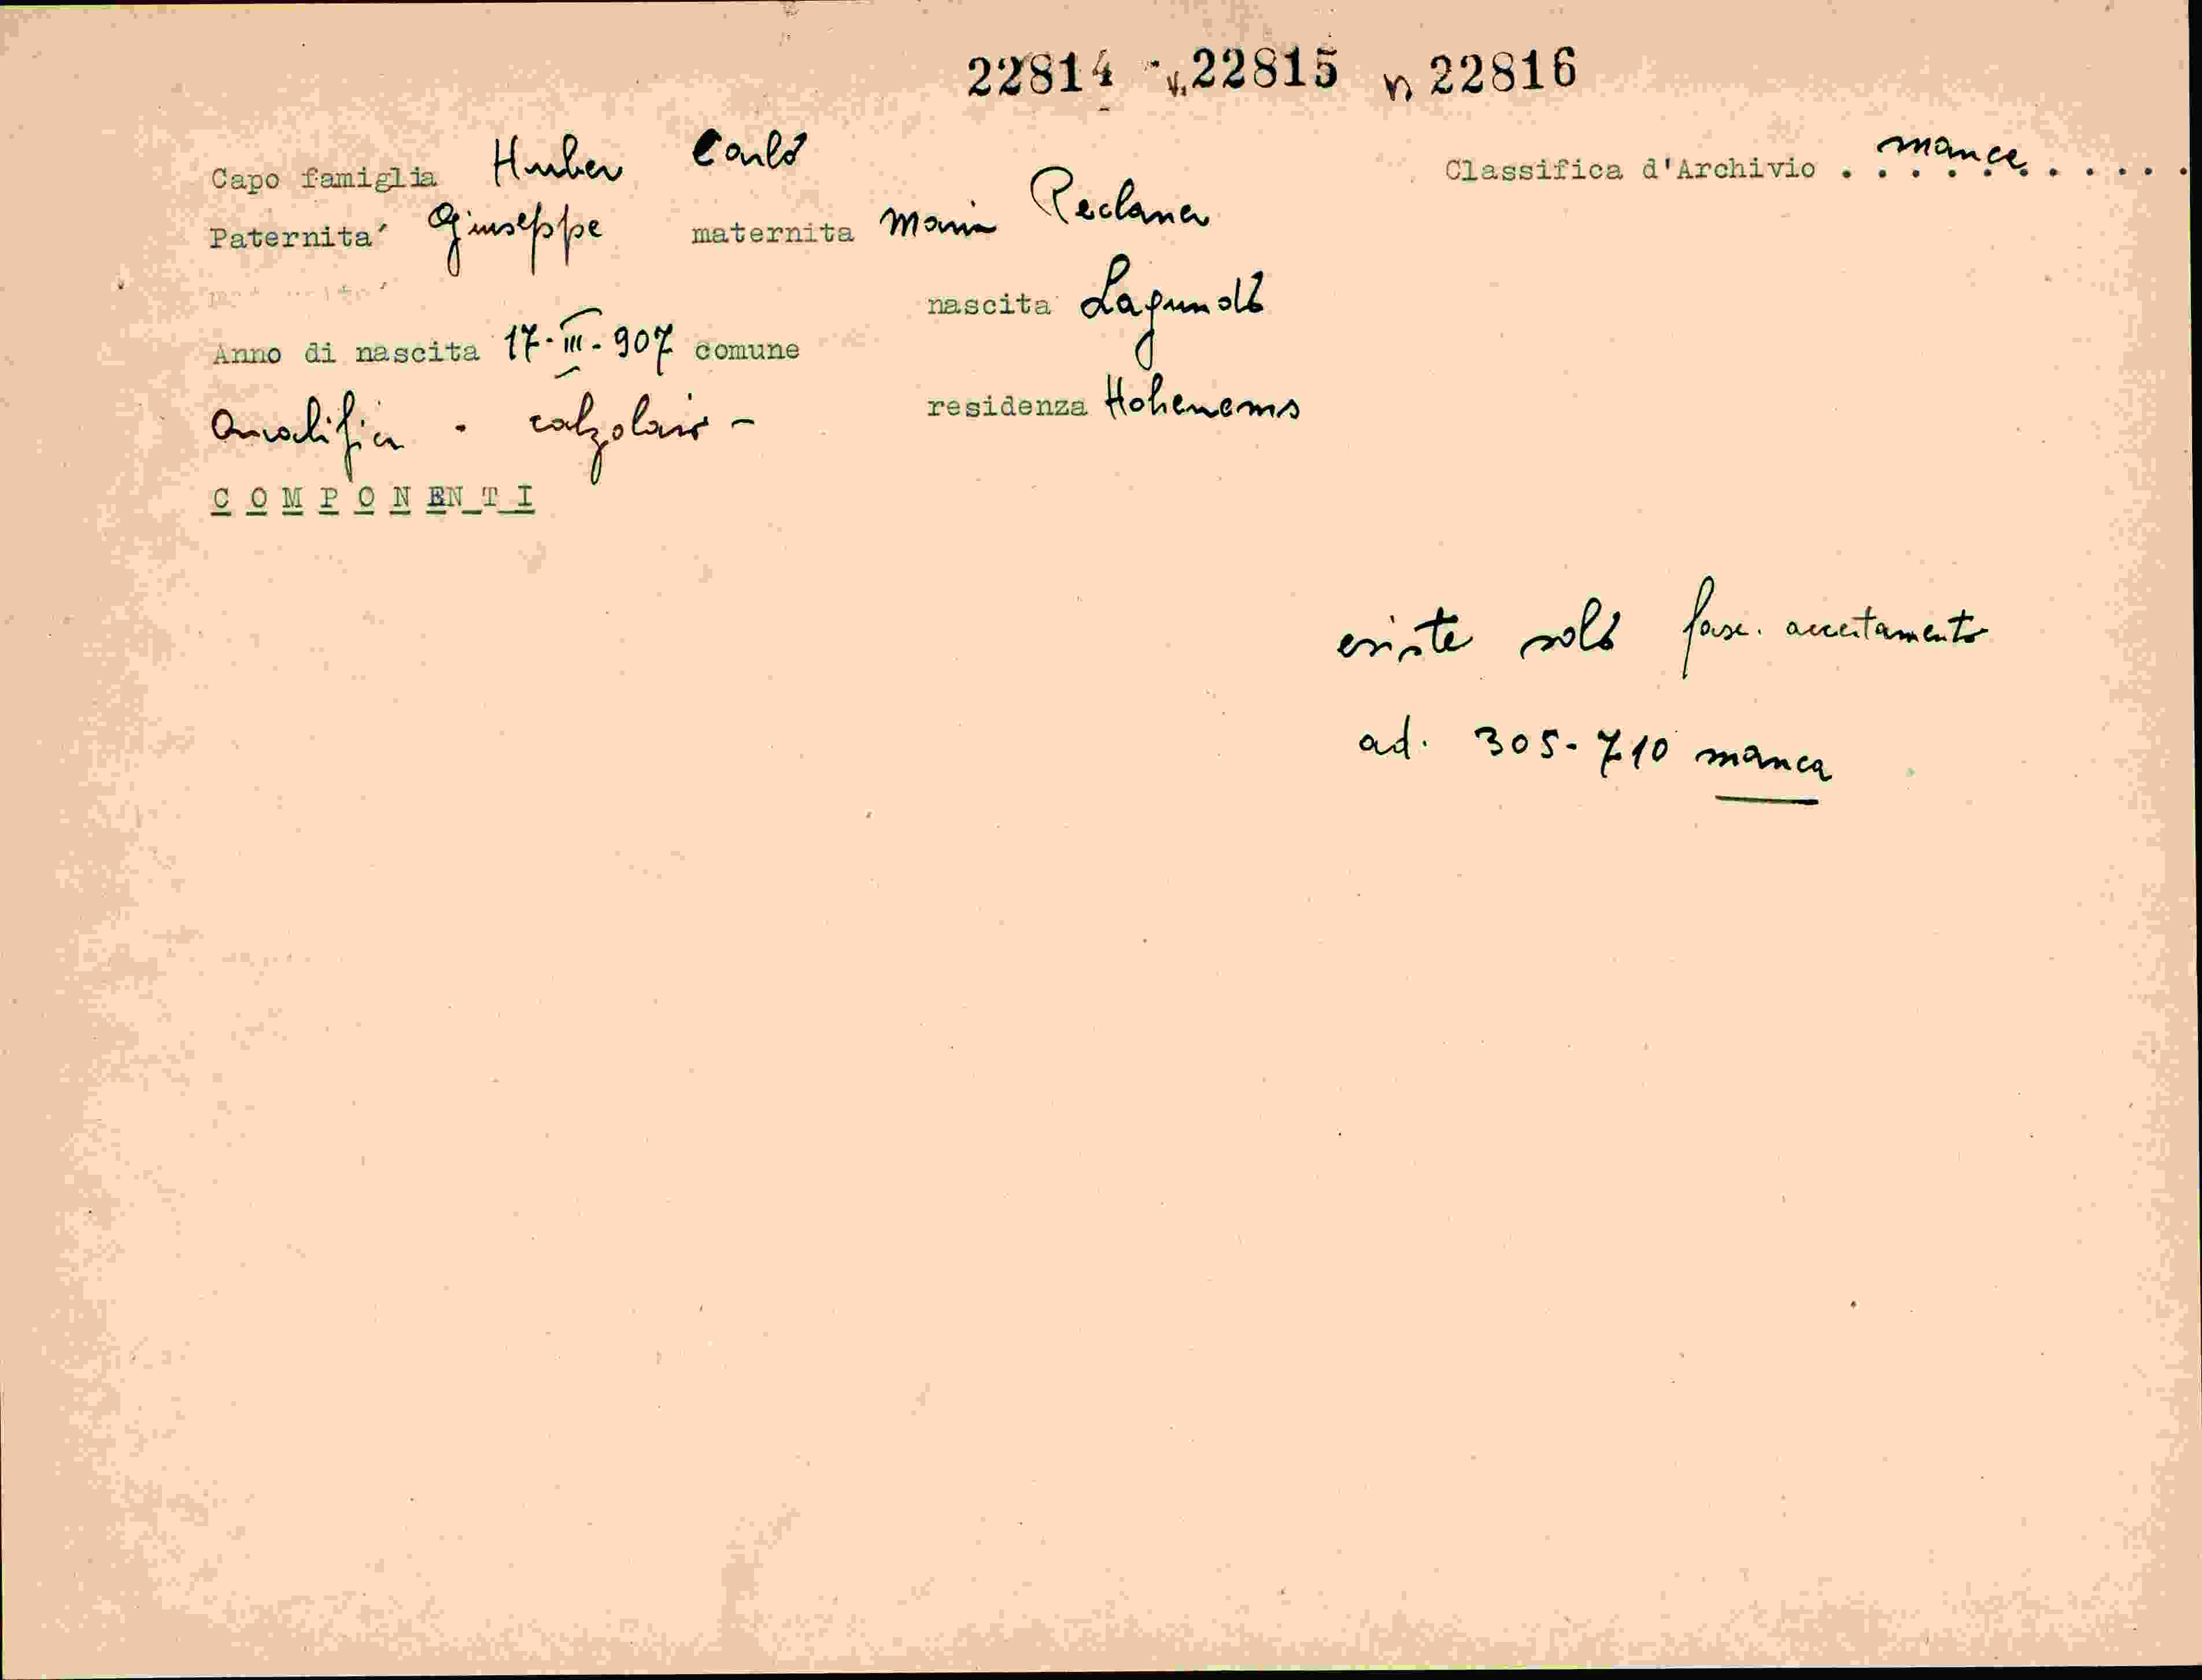 22814 - v. 22815 n 22816
Capo famiglia Huber Carlo
Classifica d'Archivio . manca . . . . . .
Paternita' Giuseppe maternita Maria
nascita Lagundo
Anno di nascita 17-III-907 comune
residenza Hohenems
Qualifica - calzolaio -
COMPONENTI
esiste solo fasc. accertamento
ad. 305-710 manca